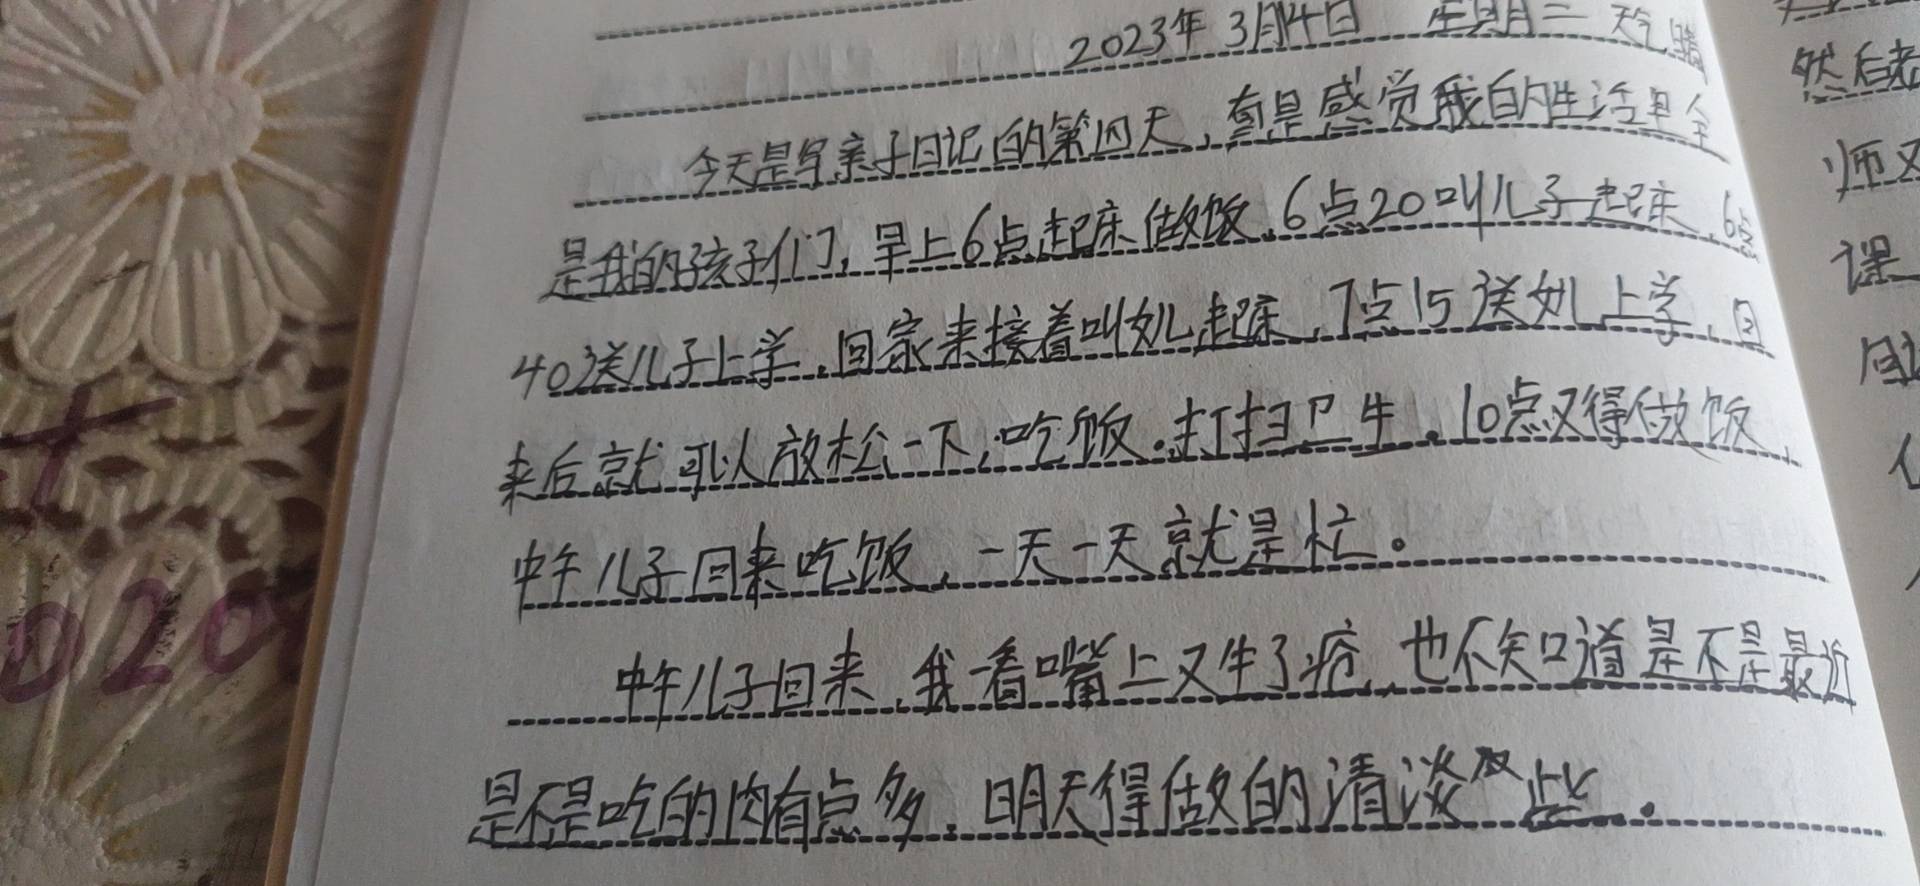 2023年 3月14日 星期二 天气晴
今天是写亲子日记的第四天，真是感觉我的生活里全
是我的孩子们，早上6点起床做饭，6点20叫儿子起床，6点
40送儿子上学，回家来接着叫女儿起床，7点15送女儿上学，回
来后就可以放松一下，吃饭．打扫卫生，10点又得做饭，
中午儿子回来吃饭，一天一天就是忙。
中午儿子回来，我看嘴上又生了疮，也不知道是不是最近
是不是吃的肉有点多，明天得做的清淡些。
然后老
师又
课